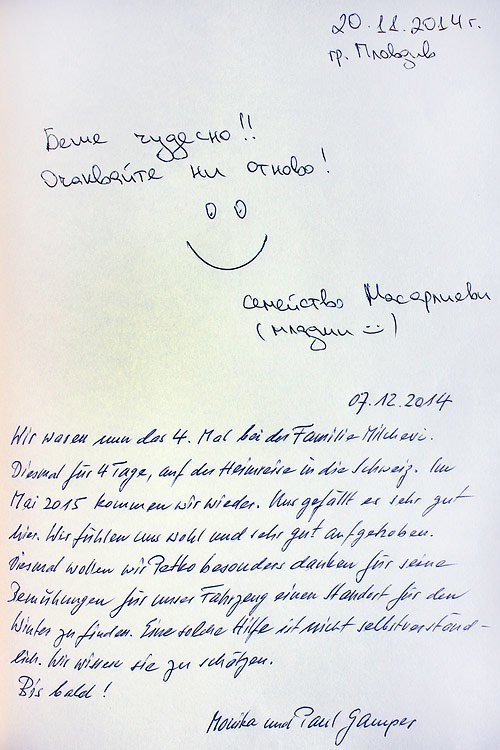 20.11.2014г.
гр. Пловдив
Беше чудесно!!
Очаквайте ни отново!
семейство Масарлиеви
(млади :))
07.12.2014
Wir waren nun das 4. Mal bei der Familie Milchevi.
Diesmal für 4 Tage, auf der Heimreise in die Schweiz. Im
Mai 2015 kommen wir wieder. Uns gefällt es sehr gut
hier. Wir fühlen uns wohl und sehr gut aufgehoben.
Diesmal wollen wir Petko besonders danken für seine
Bemühungen für unser Fahrzeug einen Standort für den
Winter zu finden. Eine solche Hilfe ist nicht selbstverständ-
lich. Wir wissen sie zu schätzen.
Bis bald!
Monika und Paul Gamper